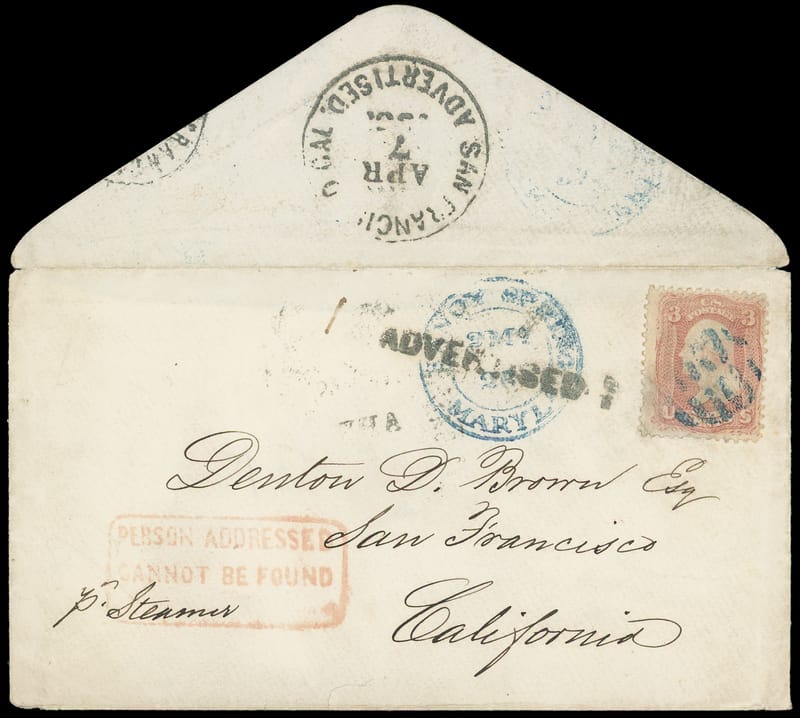 SAN FRANCISCO CAL. ADVERTISED.
APR
7
FRAN
ADVERTISED
MARYL
3 3
U.S.
POSTAGE
Denton D. Brown Esq
San Francisco
California
PERSON ADDRESSED
CANNOT BE FOUND
pr. Steamer